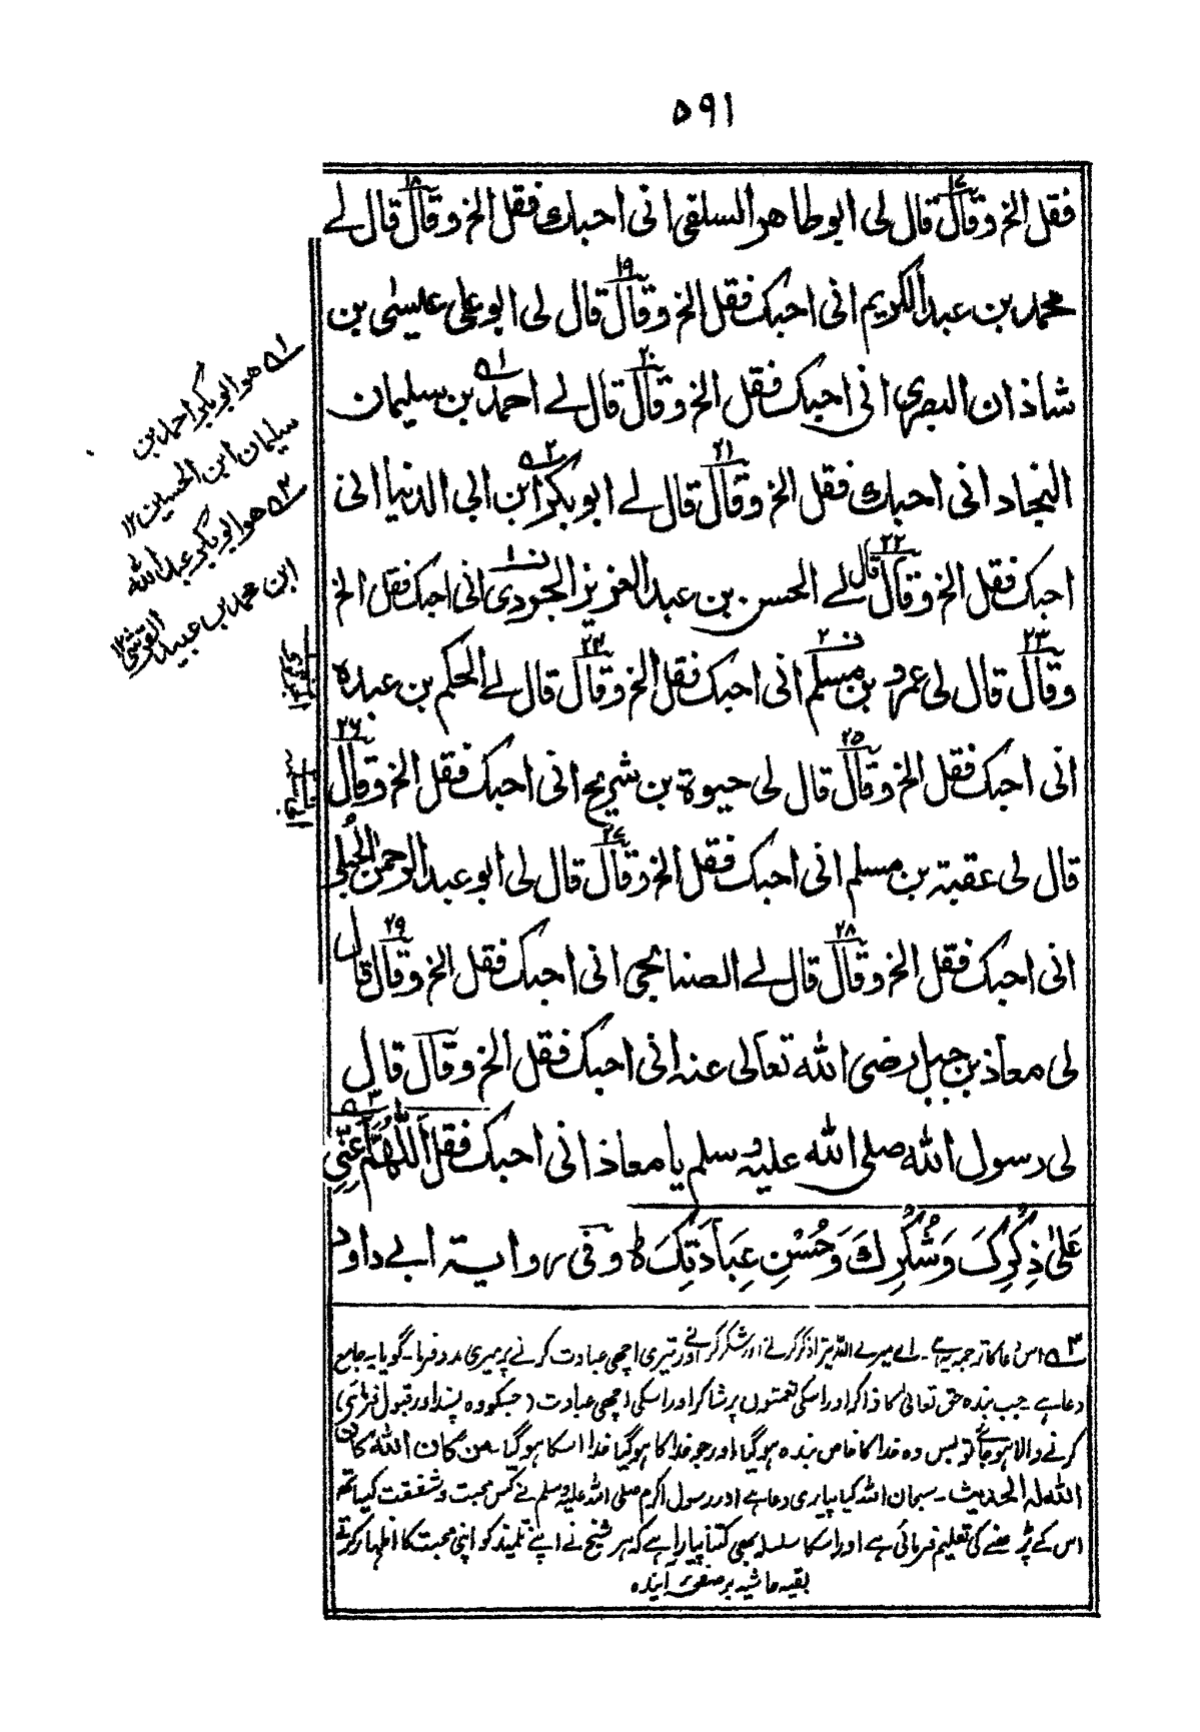 ٥٩١
فقل الخ وقال ١٧ قال لی ابو طاهر السلفی انی احبك فقل الخ وقال ١٨ قال لے
محمد بن عبد الکریم انی احبك فقل الخ وقال ١٩ قال لی ابو علی عیسٰی بن
شاذان البصری انی احبك فقل الخ وقال ٢٠ قال لے احمد ١؎ بن سلیمان
النجاد انی احبك فقل الخ وقال ٢١ قال لے ابو بکر ٢؎ ابن ابی الدنیا انی
احبك فقل الخ وقال ٢٢ قال لے الحسن بن عبد العزیز الجودی ن١ انی احبك فقل الخ
وقال ٢٣ قال لی عمرو بن مسلم ن٢ انی احبك فقل الخ وقال ٢٤ قال لے الحکم بن عبدہ
انی احبك فقل الخ وقال ٢٥ قال لی حیوة بن شریح انی احبك فقل الخ وقال ٢٦
قال لی عقبة بن مسلم انی احبك فقل الخ وقال ٢٧ قال لی ابو عبد الرحمن الحُبلی
انی احبك فقل الخ وقال ٢٨ قال لے الصنابحی انی احبك فقل الخ وقال ٢٩ قال
لی معاذ بن جبل رضی الله تعالی عنه انی احبك فقل الخ وقال قال
لی رسول الله صلی الله علیه وسلم یا معاذ انی احبك فقل اَللّٰهُمَّ ٣؎ اَعِنِّی
عَلٰی ذِکْرِکَ وَشُکْرِكَ وَحُسْنِ عِبَادَتِکَ ہ وفی روایة ابے داود
١؎ هو ابو بکر احمد بن
سلیمان ابن الحسین ١٢
٢؎ هو ابو بکر عبد الله
ابن محمد بن عبید القرشی ١٢
٣؎ اس دعا کا ترجمہ یہ ہے۔ اے میرے اللہ تیرا ذکر کرنے اور شکر کرنے اور تیری اچھی عبادت کرنے پر میری مدد فرما۔ گویا یہ جامع
دعا ہے جب بندہ حق تعالی کا ذاکر اور اسکی نعمتوں پر شاکر اور اسکی اچھی عبادت (جسکو وہ پسند اور قبول فرمائیں)
کرنے والا ہو جائے تو بس وہ خدا کا خاص بندہ ہو گیا اور جو خدا کا ہو گیا خدا اسکا ہو گیا۔ من کان الله کان
الله له الحدیث۔ سبحان اللہ کیا پیاری دعا ہے اور رسول اکرم صلی اللہ علیہ وسلم نے کس محبت و شفقت کیساتھ
اس کے پڑھنے کی تعلیم فرمائی ہے اور اسکا سلسلہ بھی کتنا پیارا ہے کہ ہر شیخ نے اپنے تلمیذ کو اپنی محبت کا اظہار کرتے
بقیہ حاشیہ بر صفحہ آیندہ